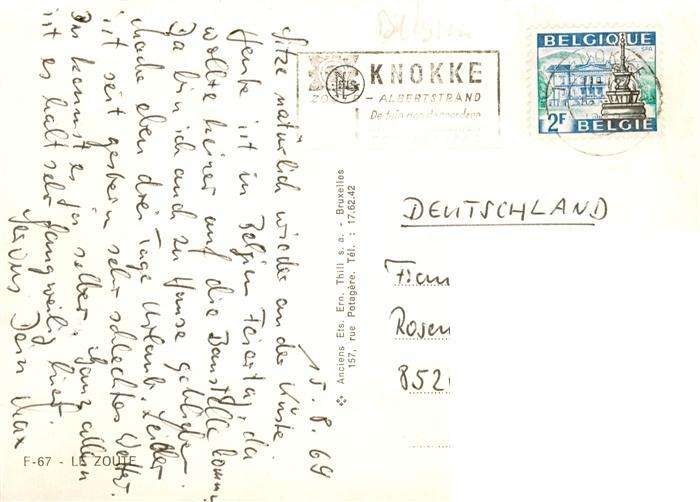 15.8.69
Sitze natürlich wieder an der Küste.
Heute ist in Belgien Feiertag, da
wollte keiner auf die Baustelle komm
Da bin ich auch zu Hause geblieben.
Mache eben drei Tage Urlaub. Leider
ist seit gestern sehr schlechtes Wetter.
Du kennst es ja selber, ganz allein
ist es halt sehr langweilig hier.
Servus Dein Max
F-67 - LE ZOUTE
Anciens Ets. Ern. Thill s. a. - Bruxelles
157, rue Potagère. Tél. : 17.62.42
KNOKKE
- ALBERTSTRAND
BELGIQUE
2F BELGIE
DEUTSCHLAND
Frau
Rosen
852